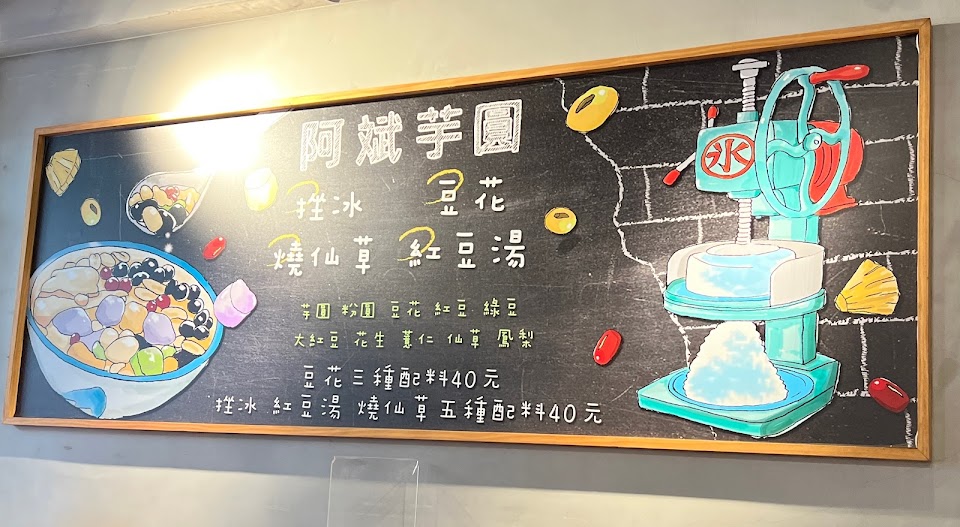 阿斌芋圓
挫冰 豆花
燒仙草 紅豆湯
芋圓 粉圓 豆花 紅豆 綠豆
大紅豆 花生 薏仁 仙草 鳳梨
豆花三種配料40元
挫冰 紅豆湯 燒仙草五種配料40元
氷